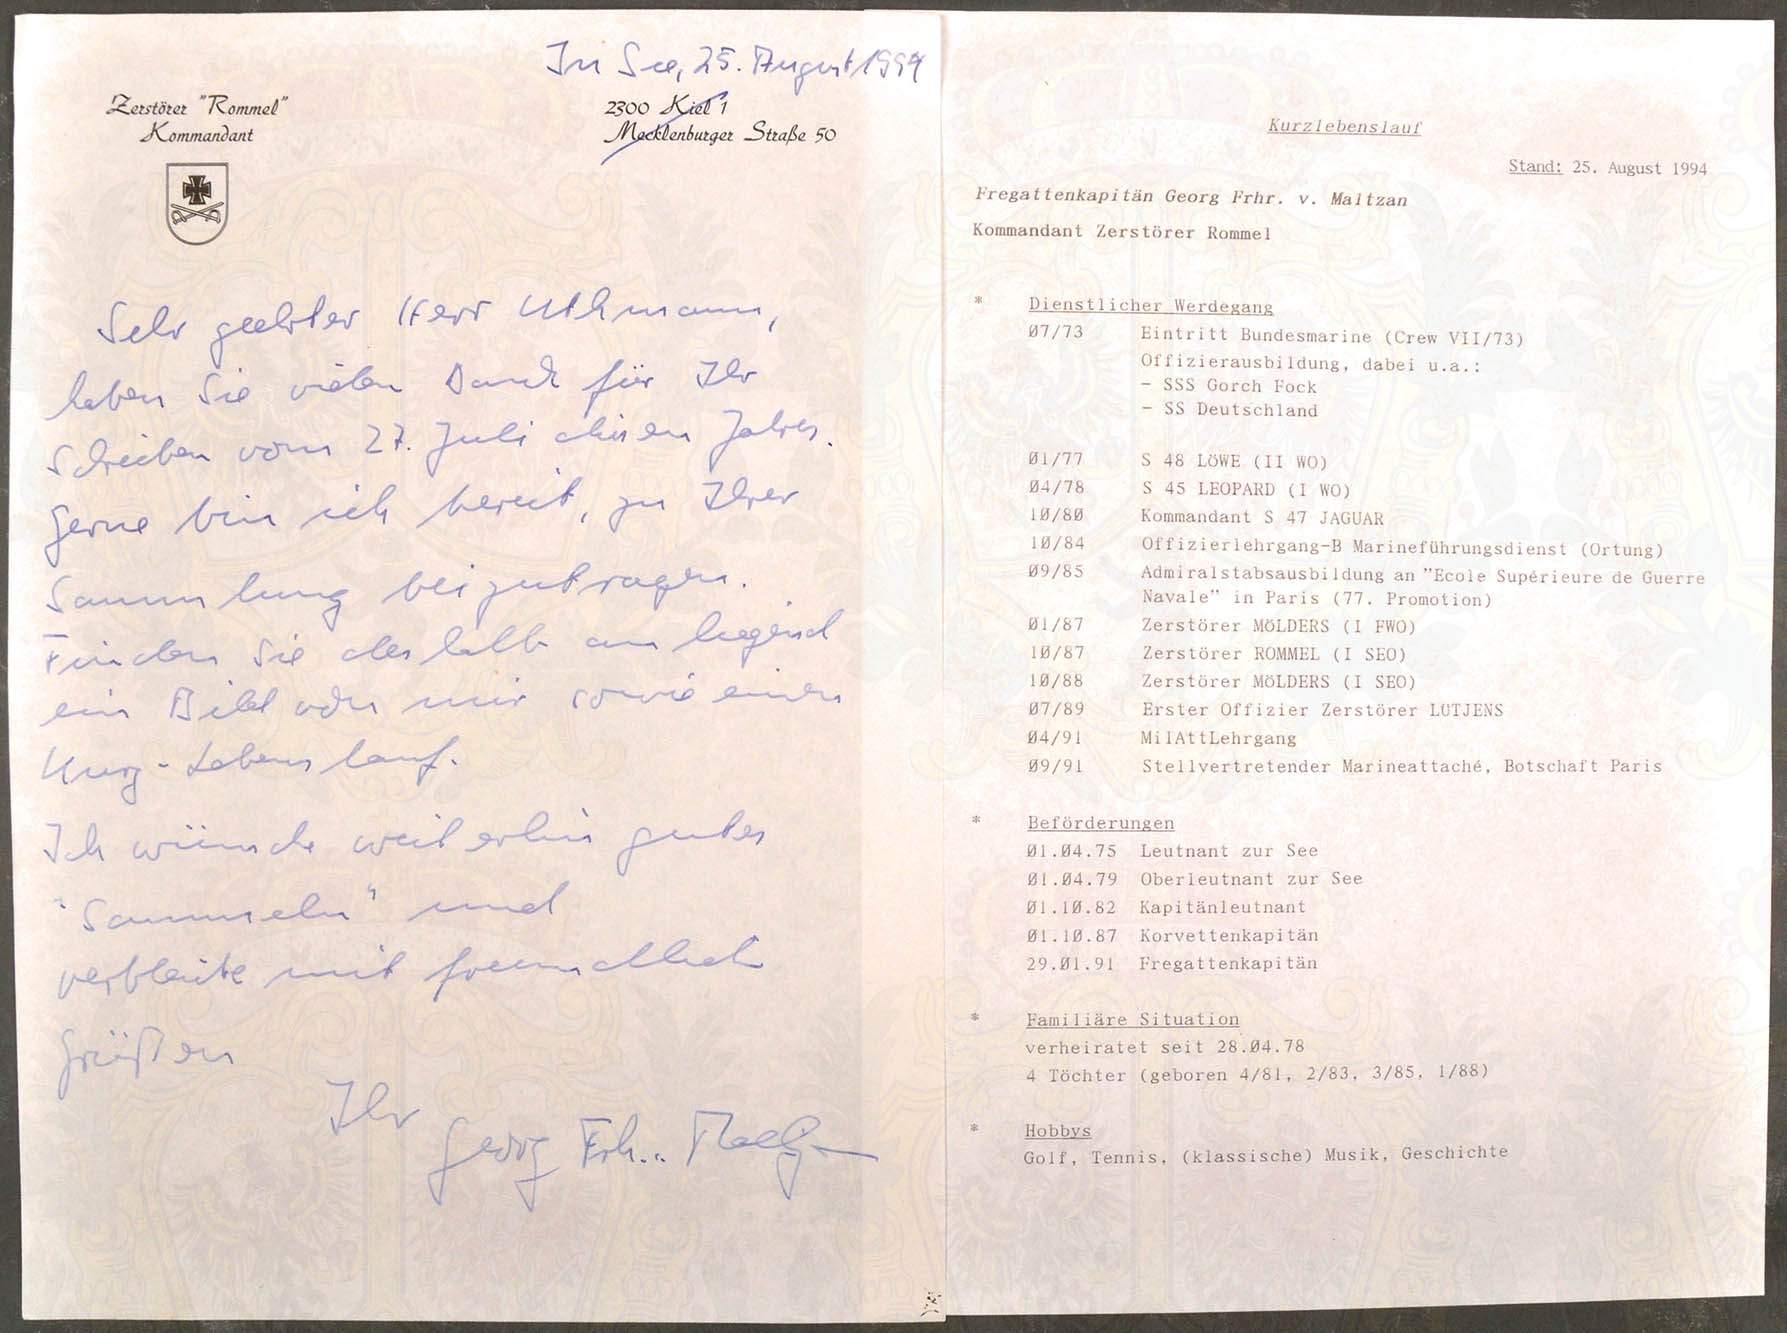 In See, 25. August 1994
Zerstörer "Rommel"
Kommandant
2300 Kiel 1
Mecklenburger Straße 50
Sehr geehrter Herr Uthmann,
haben Sie vielen Dank für Ihr
Schreiben vom 27. Juli diesen Jahres.
Gerne bin ich bereit, zu Ihrer
Sammlung beizutragen.
Finden Sie deshalb anliegend
ein Bild von mir sowie einen
Kurz-Lebenslauf.
Ich wünsche weiterhin gutes
"Sammeln" und
verbleibe mit freundlich
Grüßen
Ihr
Georg Frh.. Maltzan
Kurzlebenslauf
Stand: 25. August 1994
Fregattenkapitän Georg Frhr. v. Maltzan
Kommandant Zerstörer Rommel
* Dienstlicher Werdegang
07/73 Eintritt Bundesmarine (Crew VII/73)
Offizierausbildung, dabei u.a.:
- SSS Gorch Fock
- SS Deutschland
01/77 S 48 LÖWE (II WO)
04/78 S 45 LEOPARD (I WO)
10/80 Kommandant S 47 JAGUAR
10/84 Offizierlehrgang-B Marineführungsdienst (Ortung)
09/85 Admiralstabsausbildung an "Ecole Supérieure de Guerre
Navale" in Paris (77. Promotion)
01/87 Zerstörer MÖLDERS (I FWO)
10/87 Zerstörer ROMMEL (I SEO)
10/88 Zerstörer MÖLDERS (I SEO)
07/89 Erster Offizier Zerstörer LÜTJENS
04/91 MilAttLehrgang
09/91 Stellvertretender Marineattaché, Botschaft Paris
* Beförderungen
01.04.75 Leutnant zur See
01.04.79 Oberleutnant zur See
01.10.82 Kapitänleutnant
01.10.87 Korvettenkapitän
29.01.91 Fregattenkapitän
* Familiäre Situation
verheiratet seit 28.04.78
4 Töchter (geboren 4/81, 2/83, 3/85, 1/88)
* Hobbys
Golf, Tennis, (klassische) Musik, Geschichte